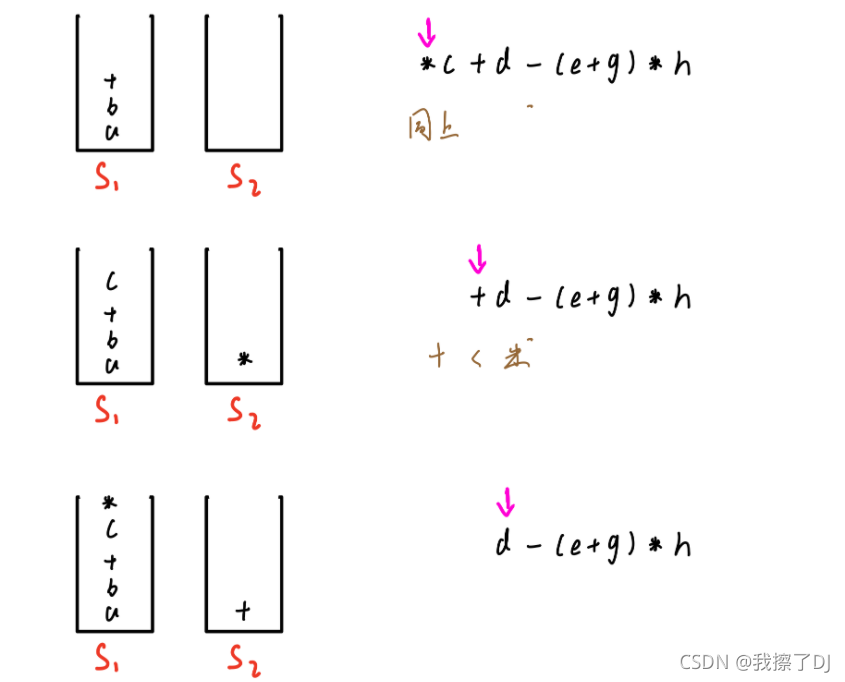 +
b
a
S₁ S₂
*c+d-(e+g)*h
同上
c
+
b
a
*
S₁ S₂
+d-(e+g)*h
+<*
*
c
+
b
a
+
S₁ S₂
d-(e+g)*h
CSDN @我擦了DJ